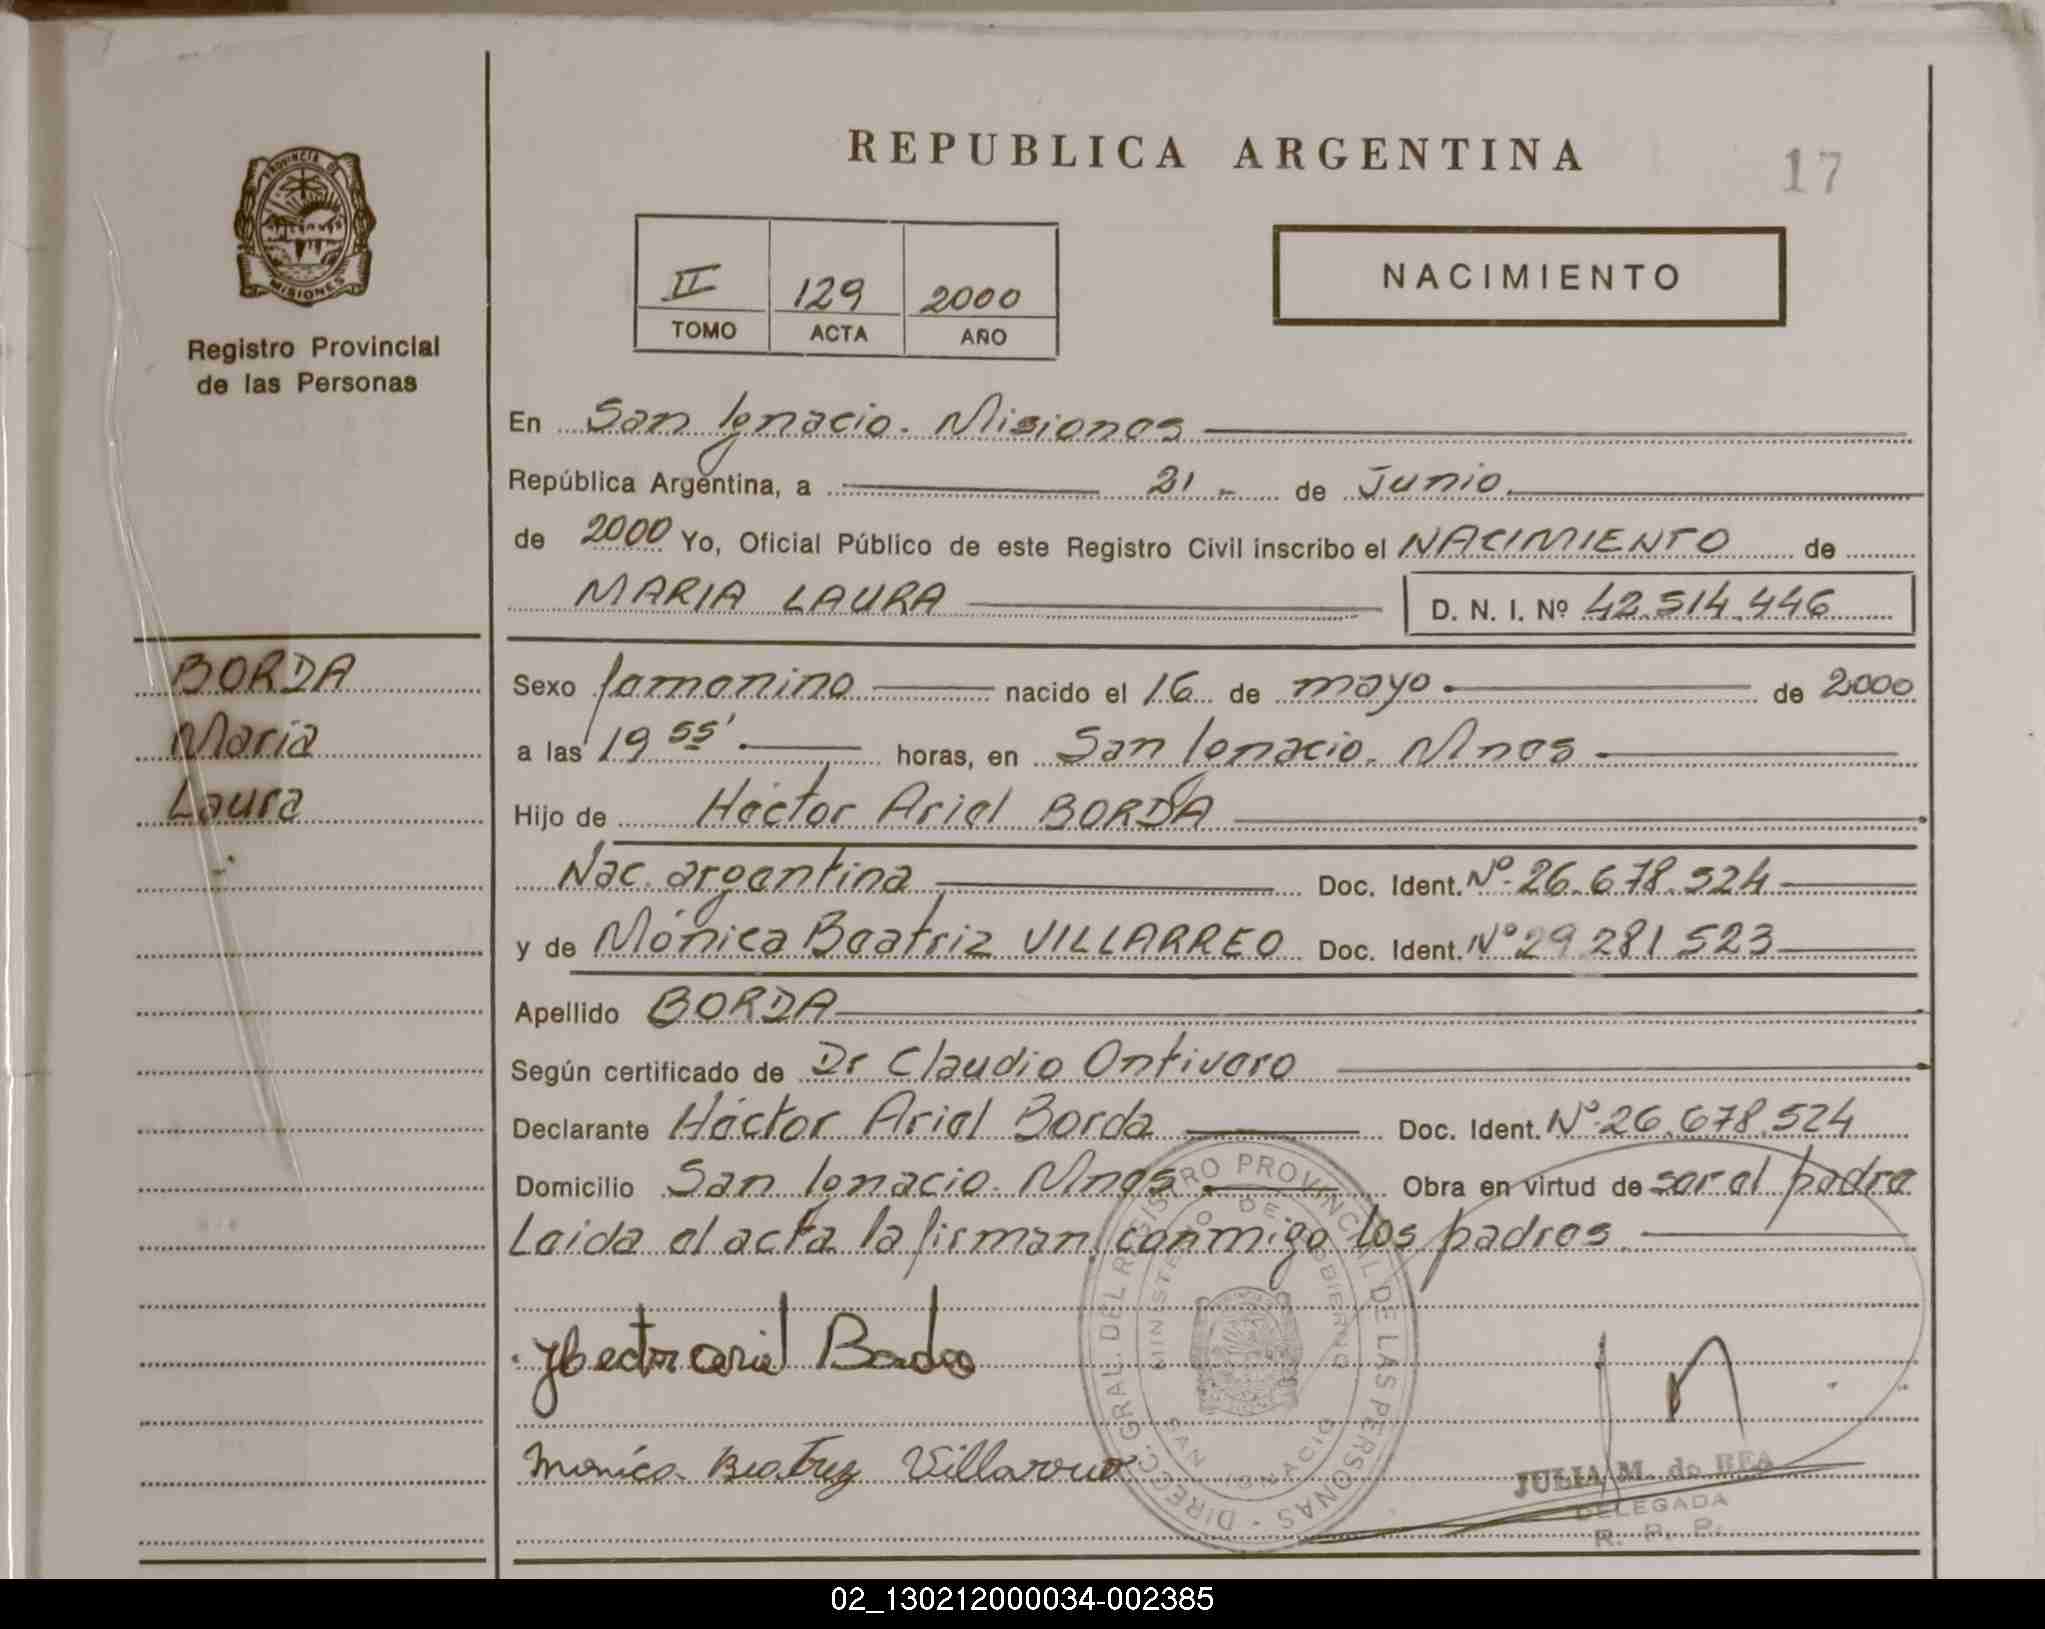 REPUBLICA ARGENTINA
17
PROVINCIA DE
MISIONES
Registro Provincial
de las Personas
II 129 2000
TOMO ACTA AÑO
NACIMIENTO
En San Ignacio. Misiones
República Argentina, a 21 - de Junio
de 2000 Yo, Oficial Público de este Registro Civil inscribo el NACIMIENTO de
MARIA LAURA D. N. I. Nº 42.514.446
BORDA
Maria
Laura
Sexo femenino nacido el 16 de mayo de 2000
a las 19 55' horas, en San Ignacio. Mnes
Hijo de Héctor Ariel BORDA
Nac. argentina Doc. Ident. Nº 26.678.524
y de Mónica Beatriz VILLARREO Doc. Ident. Nº 29 281 523
Apellido BORDA
Según certificado de Dr Claudio Ontivero
Declarante Héctor Ariel Borda Doc. Ident. Nº 26.678.524
Domicilio San Ignacio. Mnes Obra en virtud de ser el padre
Leida el acta la firman conmigo los padres.
Hector ariel Borda
Monica Beatriz Villarreo
DIRECC. GRAL. DEL REGISTRO PROVINCIAL DE LAS PERSONAS -
MINISTERIO DE GOBIERNO
SAN IGNACIO
JULIA M. de REA
DELEGADA
R. P. P.
02_130212000034-002385